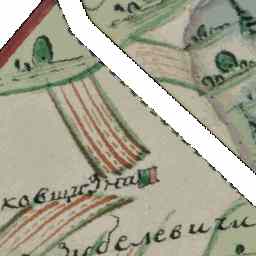 ковщизна
Зюбелевичи